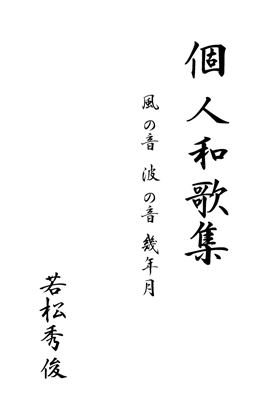 個人和歌集
風の音 波の音 幾年月
若松秀俊